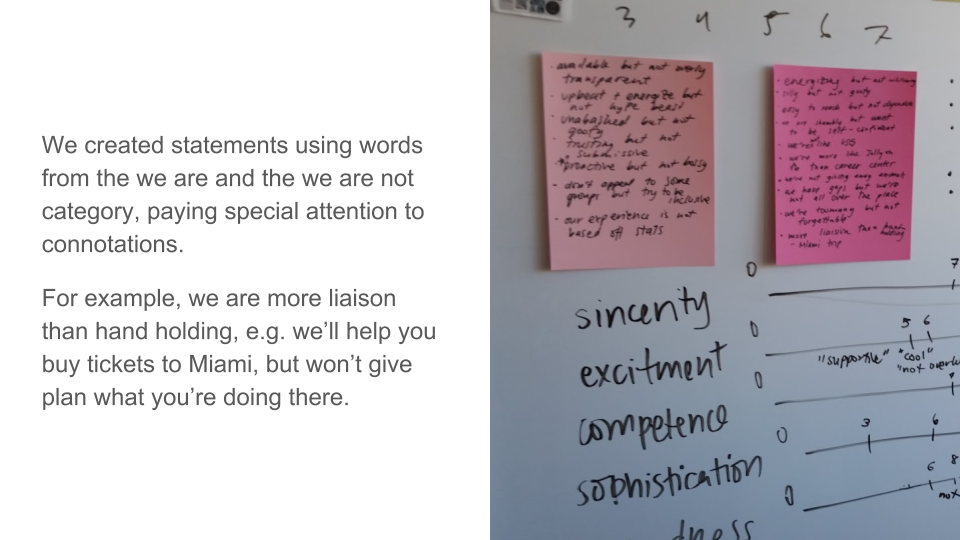 We created statements using words
from the we are and the we are not
category, paying special attention to
connotations.
For example, we are more liaison
than hand holding, e.g. we’ll help you
buy tickets to Miami, but won’t give
plan what you’re doing there.
3 4 5 6 7
- available but not overly
transparent
- upbeat + energize but
not hype beast
- unabashed but not
goofy
- trusting but not
submissive
- proactive but not bossy
- don't appeal to some
groups but try to be
inclusive
- our experience is not
based off stats
- energizing but not
- silly but not goofy
- easy to reach but not dependent
- we are but want
to be self-confident
- we're like
- we're more like
than career center
- we're not giving away
- we have gaps but we're
not all over the place
- we're but not
forgettable
- more liaison than hand
holding
- Miami trip
0 7
sincerity
0 5 6
"supportive" "cool"
"not
excitment
0
competence
0 3 6
sophistication
0 6 8
not
dness